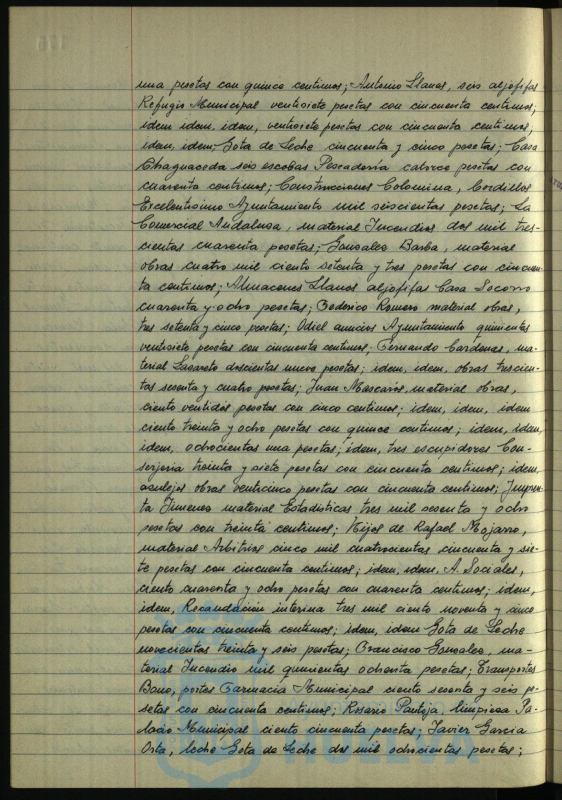 una pesetas con quince centimos; Antonio Llanos, seis aljofifas
Refugio Municipal veintisiete pesetas con cincuenta centimos;
idem idem, idem, veintisiete pesetas con cincuenta centimos;
idem, idem Gota de Leche cincuenta y cinco pesetas; Casa
Chaguaceda seis escobas Pescadería catorce pesetas con
cuarenta centimos; Construcciones Colomina, bordillos
Excelentísimo Ayuntamiento mil seiscientas pesetas; La
Comercial Andaluza, material Incendios dos mil tres-
cientas cuarenta pesetas; Gonzalez Barba, material
obras cuatro mil ciento setenta y tres pesetas con cincuen-
ta centimos; Almacenes Llanos aljofifas Casa Socorro
cuarenta y ocho pesetas; Federico Romero material obras,
tres setenta y cinco pesetas; Odiel anuncios Ayuntamiento quinientas
veintisiete pesetas con cincuenta centimos; Fernando Cardenas, ma-
terial Lazareto doscientas nueve pesetas; idem, idem, obras trescien-
tas sesenta y cuatro pesetas; Juan Mascarós, material obras,
ciento veintidós pesetas con cinco centimos; idem, idem, idem
ciento treinta y ocho pesetas con quince centimos; idem, idem,
idem, ochocientas una pesetas; idem, tres escupidores Con-
serjeria treinta y siete pesetas con cincuenta centimos; idem,
azulejos obras veinticinco pesetas con cincuenta centimos; Impren-
ta Jimenez material Estadisticas tres mil sesenta y ocho
pesetas con treinta centimos; Hijos de Rafael Mojarro,
material Arbitrios cinco mil cuatrocientas cincuenta y sie-
te pesetas con cincuenta centimos; idem, idem, A. Sociales,
ciento cuarenta y ocho pesetas con cuarenta centimos; idem,
idem, Recaudación interina tres mil ciento noventa y cinco
pesetas con cincuenta centimos; idem, idem Gota de Leche
novecientas treinta y seis pesetas; Francisco Gonzalez, ma-
terial Incendio mil quinientas ochenta pesetas; Transportes
Bano, portes Farmacia Municipal ciento sesenta y seis pe-
setas con cincuenta centimos; Rosario Pantoja, limpieza Pa-
lacio Municipal ciento cincuenta pesetas; Javier Garcia
Orta, leche Gota de Leche dos mil ochocientas pesetas;